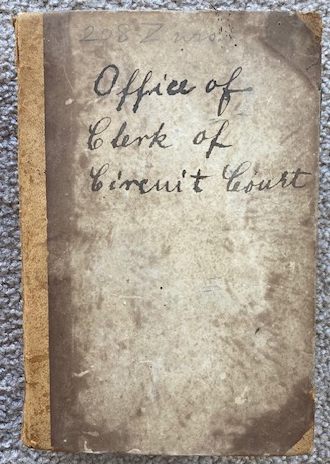 Office of
Clerk of
Circuit Court